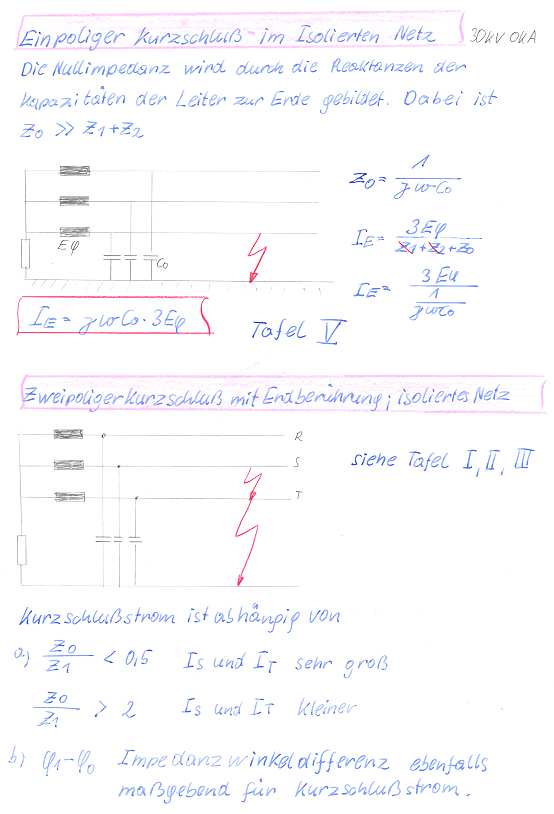 Einpoliger Kurzschluß im Isolierten Netz 30kV 0kA
Die Nullimpedanz wird durch die Reaktanzen der
Kapazitäten der Leiter zur Erde gebildet. Dabei ist
Z0 >> Z1+Z2
Z0 = 1 / jωC0
IE = 3Eφ / Z1+Z2+Z0
Eφ
C0
IE = 3Eφ / 1 / jωC0
IE = jωC0 · 3Eφ
Tafel V
Zweipoliger Kurzschluß mit Erdberührung; isoliertes Netz
R
S
T
siehe Tafel I, II, III
Kurzschlußstrom ist abhängig von
a) Z0 / Z1 < 0,5 IS und IT sehr groß
Z0 / Z1 > 2 IS und IT kleiner
b) φ1-φ0 Impedanzwinkeldifferenz ebenfalls
maßgebend für Kurzschlußstrom.